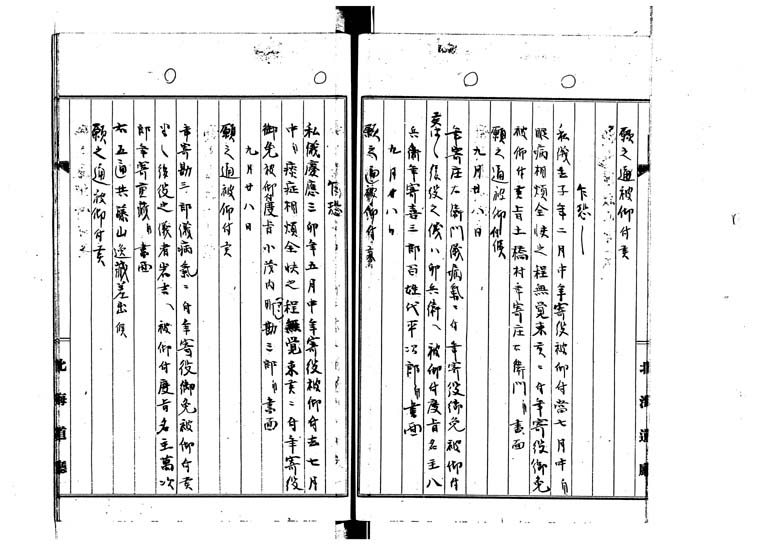 願之通被仰付度
乍恐
私儀去子年二月中年寄役被仰付當七月中ゟ
眼病相煩全快之程無覚束奉存年寄役御免
被仰付度旨土橋村年寄庄右衛門ゟ書面
願之通被仰付候
九月廿八日
年寄庄右衛門儀病氣ニ付年寄役御免被仰付
後役之儀八卯兵衛へ被仰付度旨名主八
兵衛年寄喜三郎百姓代平次郎ゟ書面
九月廿八日
願之通被仰付度
北海道廳
乍恐
私儀慶應三卯年五月中年寄役被仰付去七月
中ゟ痰症相煩全快之程無覚束ニ付年寄役
御免被仰付度旨小茂内町勘三郎ゟ書面
九月廿八日
願之通被仰付度
年寄勘三郎儀病氣ニ付年寄役御免被仰付
後役之儀者岩吉へ被仰付度旨名主萬次
郎年寄重蔵ゟ書面
右五通共藤山逸蔵差出候
願之通被仰付度
北海道廳